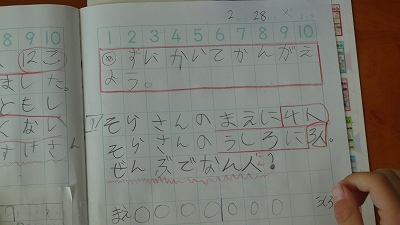 8 9 10
12こ
ました。
ともし
くない
すけさん
2 28
1 2 3 4 5 6 7 8 9 10
め ずにかいてかんがえ
よう。
1 そらさんのまえに4人
そらさんのうしろに3人。
ぜんぶでなん人?
まえ○○○○○○○○